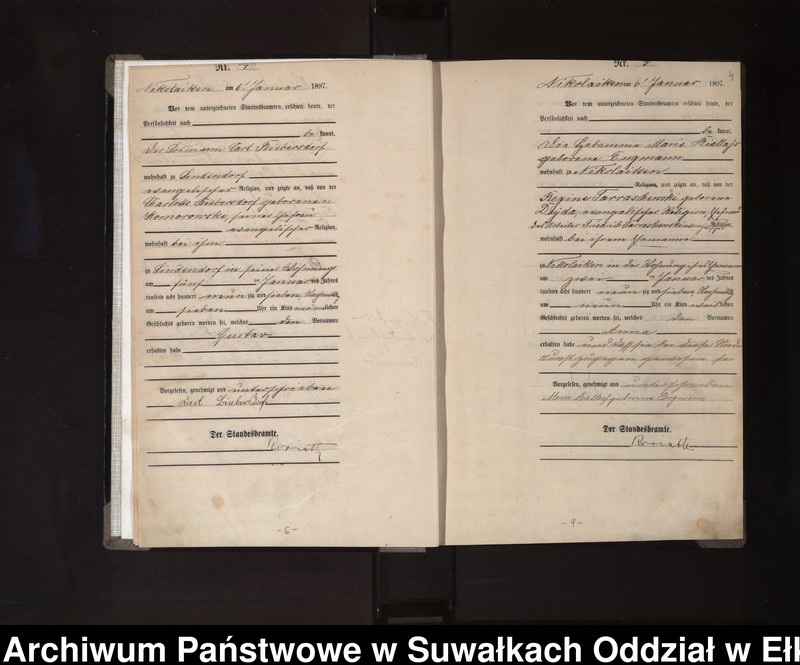 Nr.
Nikolaiken am 6ᵗ Januar 1897.
Vor dem unterzeichneten Standesbeamten erschien heute, der
Persönlichkeit nach
be kannt,
der Carl Biebersdorf
wohnhaft zu Lindendorf
evangelischer Religion, und zeigte an, daß von der
Charlotte Biebersdorf geborenen
Komorowski, seiner Ehefrau
evangelischer Religion,
wohnhaft bei ihm
zu Lindendorf in seiner Wohnung
am fünf ten Januar des Jahres
tausend acht hundert neunzig und sieben Nachmittags
um sieben Uhr ein Kind männlichen
Geschlechts geboren worden sei, welches den Vornamen
Gustav
erhalten habe
Vorgelesen, genehmigt und unterschrieben
Carl Biebersdorf
Der Standesbeamte.
Koriath
-6-
Nr.
Nikolaiken am 6ᵗ Januar 1897.
Vor dem unterzeichneten Standesbeamten erschien heute, der
Persönlichkeit nach
be kannt,
Die Hebamme Marie Biallas
geborene Engmann
wohnhaft zu Nikolaiken
Religion, und zeigte an, daß von der
Regine geborene
Dayda, evangelischer Religion Ehefrau
des Arbeiter Friedrich Religion,
wohnhaft bei ihrem Ehemanne
zu Nikolaiken in der Wohnung ihres Ehemannes
am zwei ten Januar des Jahres
tausend acht hundert neunzig und sieben Nachmittags
um neun Uhr ein Kind weiblichen
Geschlechts geboren worden sei, welches den Vornamen
Anna
erhalten habe und daß sie bei dieser Nieder-
kunft zugegen gewesen sei
Vorgelesen, genehmigt und unterschrieben
Marie Biallas geborene Engmann
Der Standesbeamte.
Koriath
-9-
Archiwum Państwowe w Suwałkach Oddział w Ełk